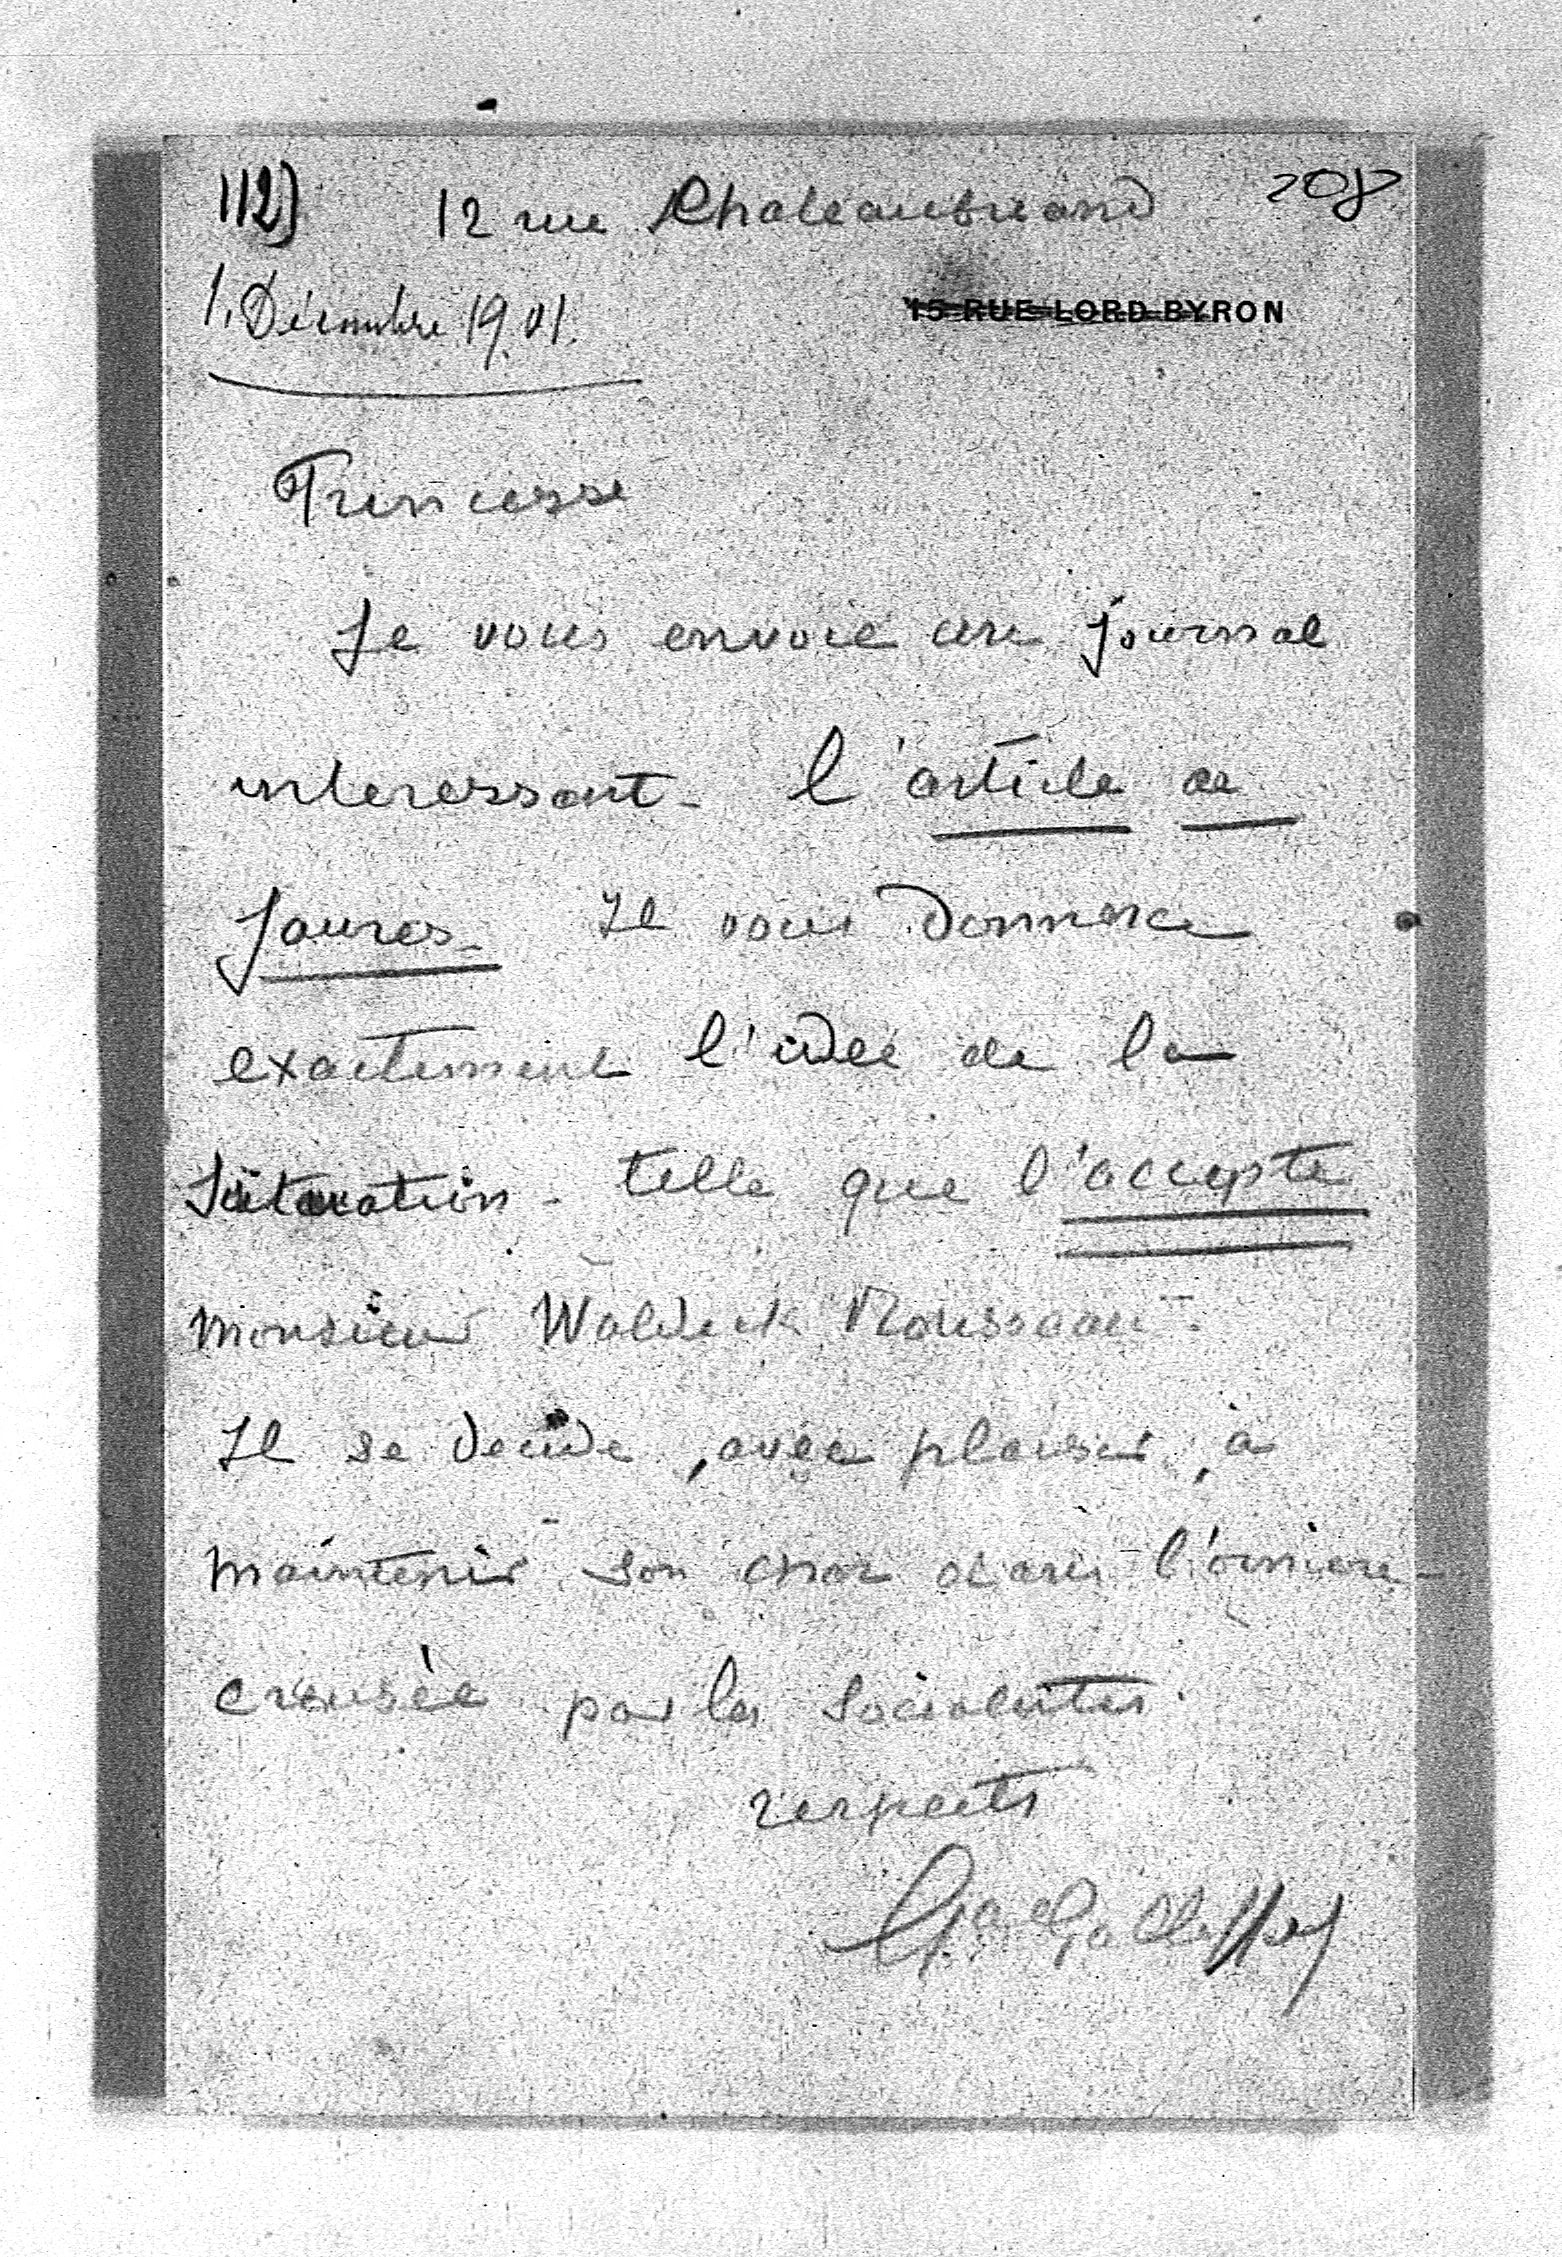 112) 12 rue Chateaubriand 208
1. Décembre 1901.
15 RUE LORD BYRON
Princesse
Je vous envoie un journal
interessant - l'article de
Jaures - Il vous donnera
exactement l'idée de la
Situation - telle que l'accepte
Monsieur Waldeck Rousseau -
Il se decide, avec plaisir, à
maintenir son char dans l'orniere -
creusée par les socialistes.
respects
Gal Galliffet